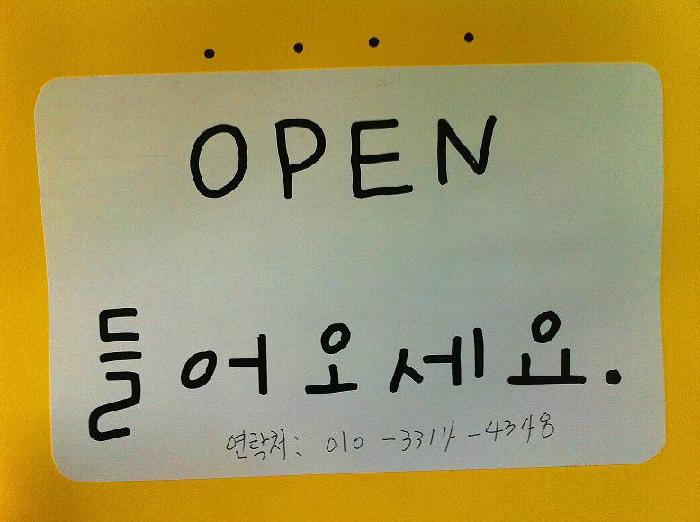 OPEN
들어오세요.
연락처: 010-3314-4348